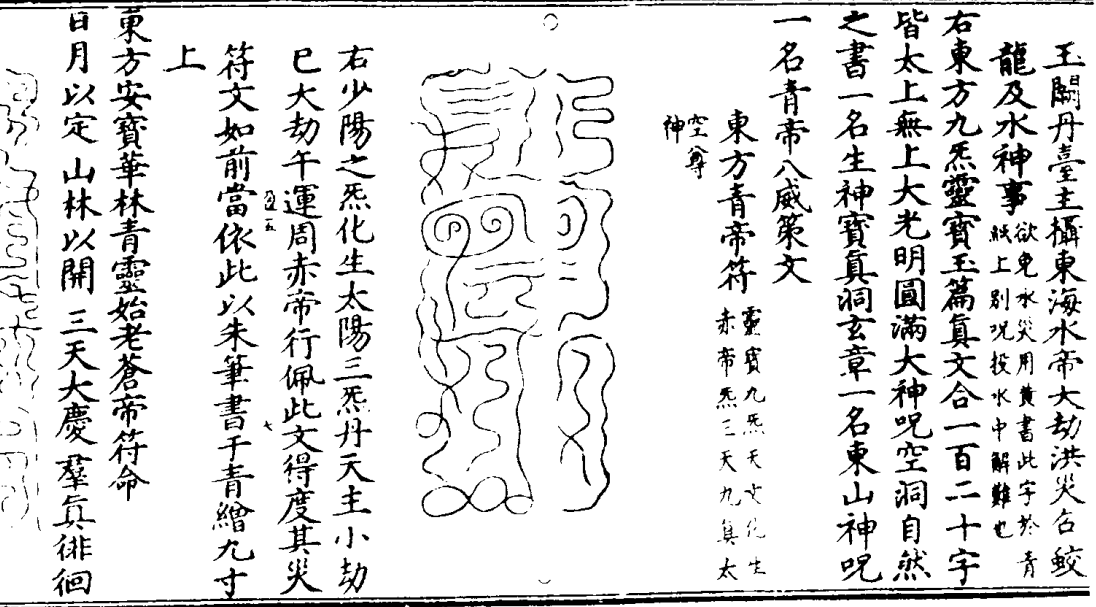 玉闕丹臺主攝東海水帝大劫洪災召蛟
龍及水神事 欲免水災用黄書此字於青
紙上別呪投水中解難也
右東方九炁靈寶玉篇真文合一百二十字
皆太上無上大光明圓滿大神呪空洞自然
之書一名生神寶真洞玄章一名東山神呪
一名青帝八威策文
東方青帝符 靈寶九炁天文化生
赤帝炁三天九真太
空尊
神
右少陽之炁化生太陽三炁丹天主小劫
巳大劫午運周赤帝行佩此文得度其災
符文如前當依此以朱筆書于青繒九寸
上
東方安寶華林青靈始老蒼帝符命
日月以定 山林以開 三天大慶 羣真徘徊